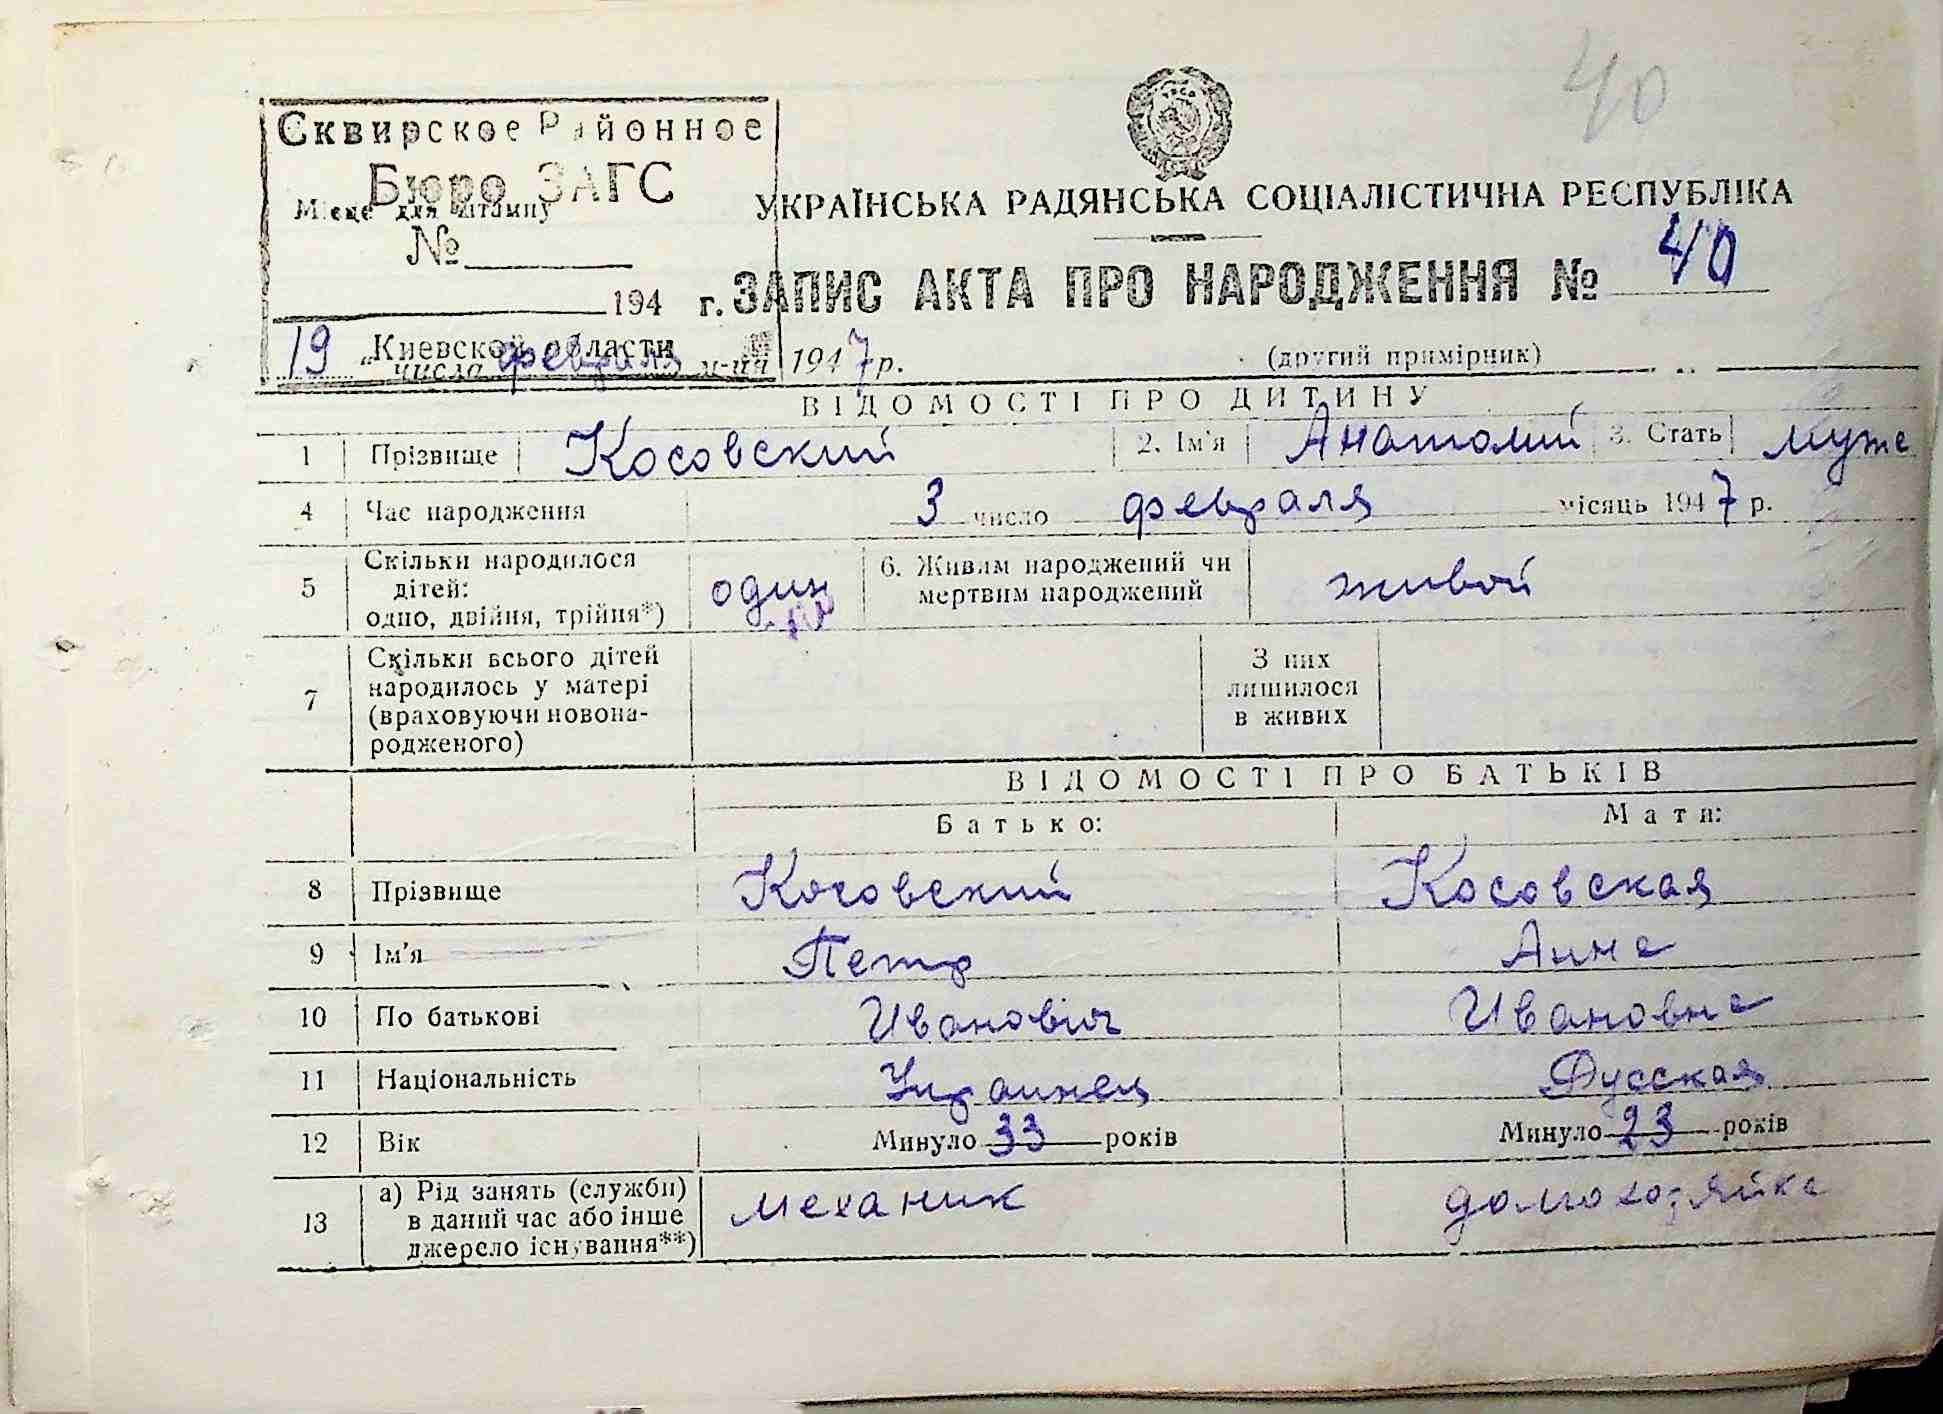 40
Сквирское Районное
Бюро ЗАГС
Місце для штампу
№
194 г.
Киевской области
УКРАЇНСЬКА РАДЯНСЬКА СОЦІАЛІСТИЧНА РЕСПУБЛІКА
ЗАПИС АКТА ПРО НАРОДЖЕННЯ № 40
19 " числа февраля м-ця 1947 р. (другий примірник)
ВІДОМОСТІ ПРО ДИТИНУ
1 Прізвище Косовский 2. Ім'я Анатолий 3. Стать муже
4 Час народження 3 число февраля місяць 1947 р.
5 Скільки народилося дітей: одно, двійня, трійня*) один 6. Живим народжений чи мертвим народжений живой
7 Скільки всього дітей народилось у матері (враховуючи новонародженого) З них лишилося в живих
ВІДОМОСТІ ПРО БАТЬКІВ
Батько: Мати:
8 Прізвище Косовский Косовская
9 Ім'я Петр Анна
10 По батькові Иванович Ивановна
11 Національність Украинец Русская
12 Вік Минуло 33 років Минуло 23 років
13 а) Рід занять (служби) в даний час або інше джерело існування**) механик домохозяйка